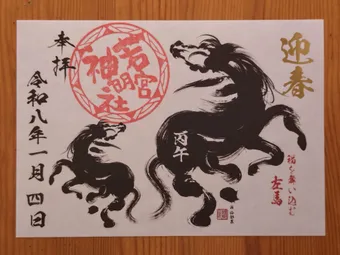 迎春
福を無い込む
左馬
丙午
若宮
神明社
奉拝
令和八年一月四日